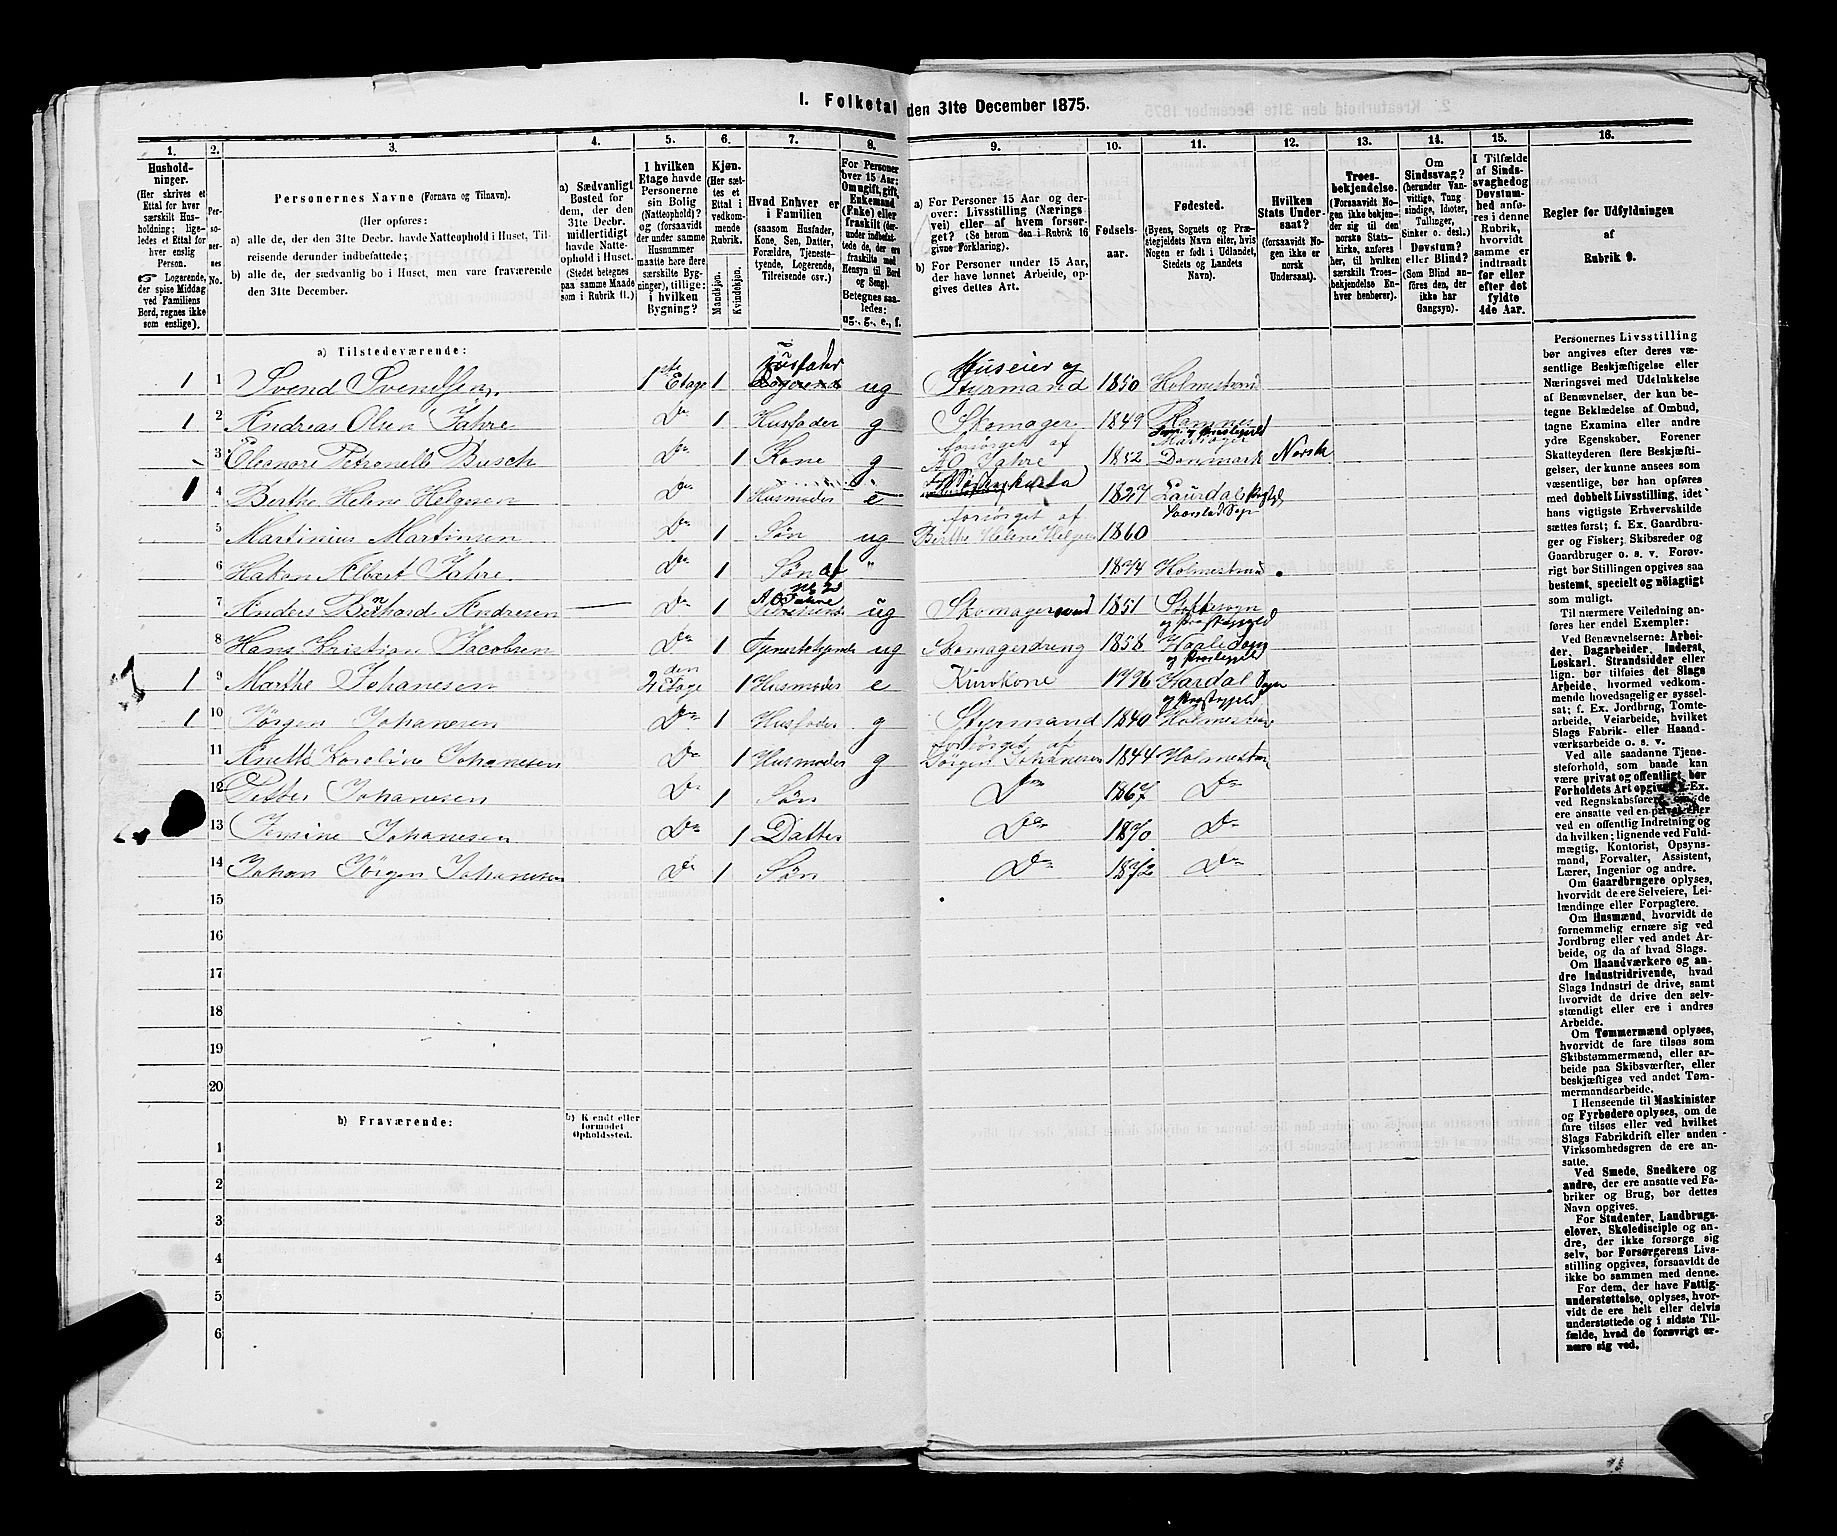 I. Folketal den 31te December 1875.
1.
2.
3.
4.
5.
6.
7.
8.
9.
10.
11.
12.
13.
14.
15.
16.
Husholdninger.
(Her skrives et
Ettal for hver
særskilt Husholdning;
ligeledes et Ettal for
hver enslig
Person.
Logerende,
der spise Middag
ved Familiens
Bord, regnes ikke
som enslige).
Personernes No.
Personernes Navne (Fornavn og Tilnavn).
(Her opføres:
a) alle de, der den 31te Decbr. havde Natteophold i Huset, Tilreisende derunder indbefattede;
b) alle de, der sædvanlig bo i Huset, men vare fraværende
den 31te December.
a) Sædvanligt
Bosted for
dem, der den
31te Decbr.
midlertidigt
havde Natteophold
i Huset.
(Stedet betegnes
paa samme Maade
som i Rubrik 11.)
I hvilken
Etage havde
Personerne
sin Bolig
(Natteophold)?
og (forsaavidt
der under samme
Husnummer
maatte høre flere
særskilte Bygninger),
tillige:
i hvilken
Bygning?
Kjøn.
(Her sættes
et
Ettal i
vedkommende
Rubrik.
Mandkjøn.
Kvindekjøn.
Hvad Enhver er
i Familien
(saasom Husfader,
Kone, Søn, Datter,
Forældre, Tjenestetyende,
Logerende,
Tilreisende osv.)
For Personer
over 15 Aar:
Om ugift, gift,
Enkemand
(Enke) eller
fraskilt (derunder
indbefattede
de, der ere
fraskilte med
Hensyn til Bord
og Seng).
Betegnes saaledes:
ug., g., e., f.
a) For Personer 15 Aar og derover:
Livsstilling (Næringsvei)
eller af hvem forsørget?
(Se herom den i Rubrik 16
givne Forklaring).
b) For Personer under 15 Aar,
der have lønnet Arbeide, opgives
dettes Art.
Fødselsaar.
Fødested.
(Byens, Sognets og Præstegjeldets
Navn eller, hvis
Nogen er født i Udlandet,
Stedets og Landets
Navn).
Hvilken
Stats Undersaat?
(forsaavidt Nogen
ikke er
norsk
Undersaat).
Troesbekjendelse.
(Forsaavidt Nogen
ikke bekjender
sig til den
norske Statskirke,
anføres
her, til hvilken
særskilt Troesbekjendelse
Enhver
henhører).
Om
Sindssvag?
(herunder Vanvittige,
Tungsindige,
Idioter,
Tullinger,
Sinker o. desl.)
Døvstum?
eller Blind?
(Som Blind anføres
den, der
ikke har
Gangsyn).
I Tilfælde
af Sindssvaghed
og
Døvstumhed
anføres
i denne
Rubrik,
hvorvidt
samme er
indtraadt
før eller
efter det
fyldte
4de Aar.
Regler for Udfyldningen
af
Rubrik 9.
a) Tilstedeværende:
1 1 Svend Svendsen 1ste Etage 1 Husfader ug Huseier og Styrmand 1850 Holmestrand
1 2 Andreas Olsen Jahre Do 1 Husfader g Skomager 1849 Ramnes Sogn og Præstegjeld
3 Eleonore Petronelle Busch Do 1 Kone g forsørget af A O Jahre 1852 Danmark Norsk
1 4 Berthe Helene Helgesen Do 1 Husmoder e 1827 Laurdal
5 Martinius Martinsen Do 1 Søn ug forsørget af Berthe Helene Helgesen 1860
6 Hakon Albert Jahre Do 1 Søn af A O Jahre " 1874 Holmestrand
7 Anders Bernhard Andresen Do 1 ug Skomagersvend 1851 og Præstegjeld
8 Hans Kristian Jacobsen Do 1 Tjenestetyende ug Skomagerdreng 1858 og Præstegjeld
1 9 Marthe Johanesen 2den Etage 1 Husmoder e 1796 Hardal Sogn og Præstegjeld
1 10 Jørgen Johanesen Do 1 Husfader g Styrmand 1840 Holmestrand
11 Anette Karoline Johanesen Do 1 Husmoder g forsørget af Jørgen Johanesen 1844 Holmestran
12 Petter Johanesen Do 1 Søn Do 1867 Do
13 Jensine Johanesen Do 1 Datter Do 1870 Do
14 Johan Jørgen Johanesen Do 1 Søn Do 1872 Do
15
16
17
18
19
20
b) Fraværende:
b) Kjendt eller
formodet
Opholdssted.
1
2
3
4
5
6
Personernes Livsstilling
bør angives efter deres væsentlige
Beskjæftigelse eller
Næringsvei med Udelukkelse
af Benævnelser, der kun betegne
Beklædelse af Ombud,
tagne Examina eller andre
ydre Egenskaber. Forener
Skatteyderen flere Beskjæftigelser,
der kunne ansees som
væsentlige, bør han opføres
med dobbelt Livsstilling, idet
hans vigtigste Erhvervskilde
sættes først; f. Ex. Gaardbruger
og Fisker; Skibsreder og
Gaardbruger o. s. v. Forøvrigt
bør Stillingen opgives saa
bestemt, specielt og nøiagtigt
som muligt.
Til nærmere Veiledning anføres
her endel Exempler:
Ved Benævnelserne: Arbeider,
Dagarbeider, Inderst,
Løskarl, Strandsidder eller
lign. bør tilføies det Slags
Arbeide, hvormed vedkommende
hovedsagelig er sysselsat;
f. Ex. Jordbrug, Tomtearbeide,
Veiarbeide, hvilket
Slags Fabrik- eller Haandværksarbeide
o. s. v.
Ved alle saadanne Tjenesteforhold,
som baade kan
være privat og offentligt, bør
Forholdets Art opgives, f. Ex.
ved Regnskabsførere, om de
ere ansatte ved en privat eller
ved en offentlig Indretning og
da hvilken; lignende ved Fuldmægtig,
Kontorist, Opsynsmand,
Forvalter, Assistent,
Lærer, Ingeniør og andre.
Om Gaardbrugere oplyses,
hvorvidt de ere Selveiere, Leilændinge
eller Forpagtere.
Om Husmænd, hvorvidt de
fornemmelig ernære sig ved
Jordbrug eller ved andet Arbeide,
og da af hvad Slags.
Om Haandværkere og andre
Industridrivende, hvad
Slags Industri de drive, samt
hvorvidt de drive den selvstændigt
eller ere i andres
Arbeide.
Om Tømmermænd oplyses,
hvorvidt de fare tilsøs som
Skibstømmermænd, eller arbeide
paa Skibsværfter, eller
beskjæftiges ved andet Tømmermandsarbeide.
I Henseende til Maskinister
og Fyrbødere oplyses, om de
fare tilsøs eller ved hvilket
Slags Fabrikdrift eller anden
Virksomhedsgren de ere ansatte.
Ved Smede, Snedkere og
andre, der ere ansatte ved Fabriker
og Brug, bør dettes
Navn opgives.
For Studenter, Landbrugselever,
Skoledisciple og andre,
der ikke forsørge sig
selv, bør Forsørgerens Livsstilling
opgives, forsaavidt de
ikke bo sammen med denne.
For dem, der have Fattigunderstøttelse,
oplyses, hvorvidt
de ere helt eller delvis
understøttede og i sidste Tilfælde,
hvad de forøvrigt ernære
sig ved.